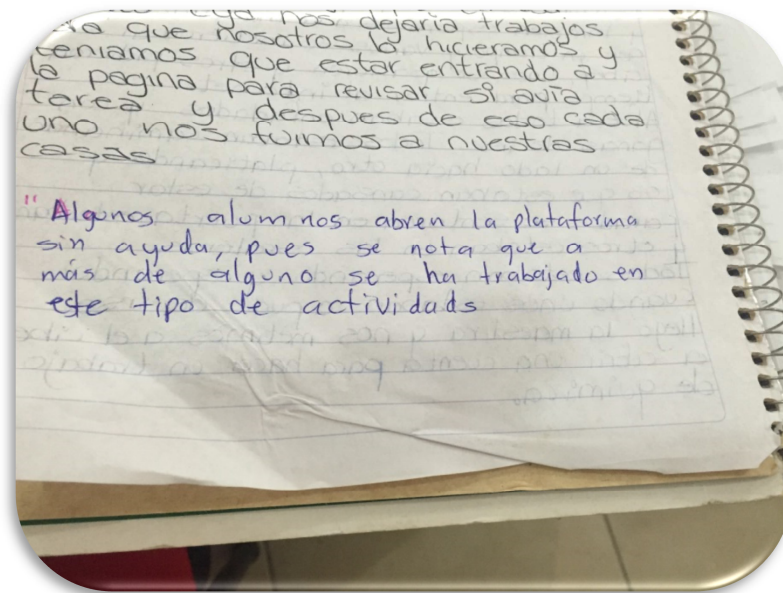 eya nos dejaria trabajos
que nosotros lo hicieramos y
teniamos que estar entrando a
la pagina para revisar si avia
terea y despues de eso cada
uno nos fuimos a nuestras
casas
"Algunos alumnos abren la plataforma
sin ayuda, pues se nota que a
más de alguno se ha trabajado en
este tipo de actividads